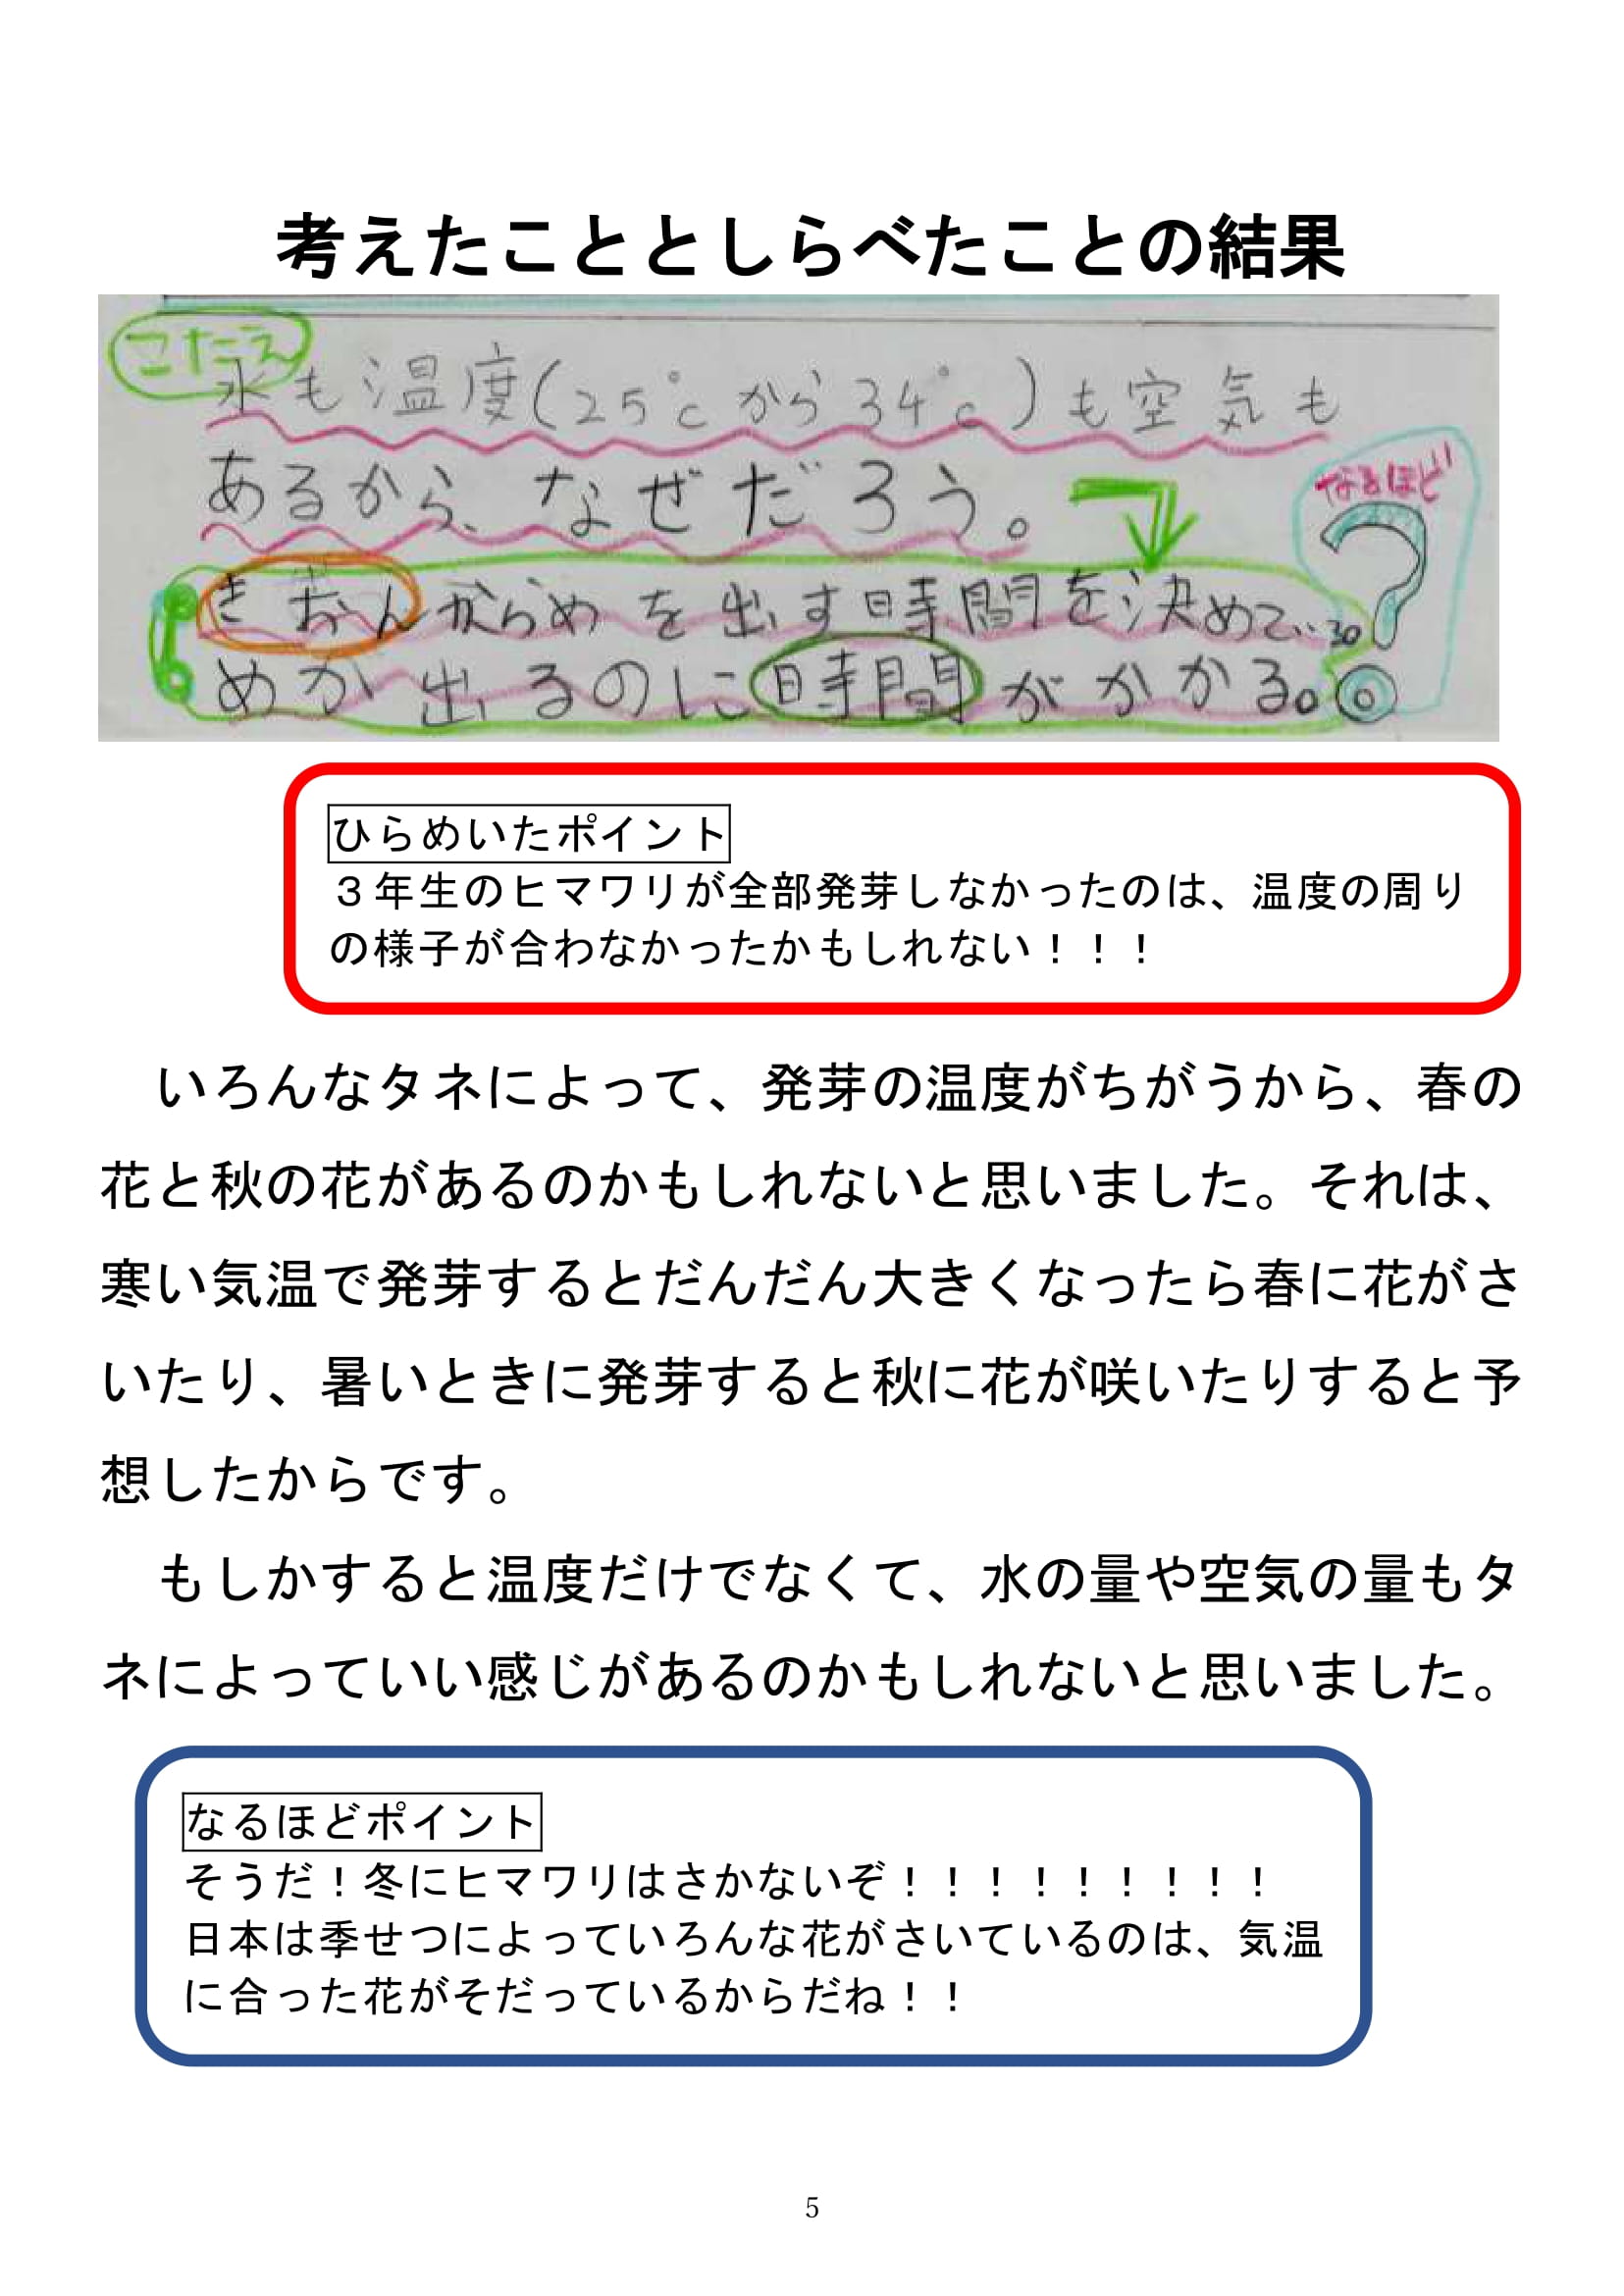 考えたこととしらべたことの結果
こたえ
水も温度(25℃から34℃)も空気も
あるから、なぜだろう。
なるほど
きおんがらめを出す時間を決めている。
めが出るのに時間がかかる。
ひらめいたポイント
3年生のヒマワリが全部発芽しなかったのは、温度の周り
の様子が合わなかったかもしれない！！！
いろんなタネによって、発芽の温度がちがうから、春の
花と秋の花があるのかもしれないと思いました。それは、
寒い気温で発芽するとだんだん大きくなったら春に花がさ
いたり、暑いときに発芽すると秋に花が咲いたりすると予
想したからです。
もしかすると温度だけでなくて、水の量や空気の量もタ
ネによっていい感じがあるのかもしれないと思いました。
なるほどポイント
そうだ！冬にヒマワリはさかないぞ！！！！！！！！！
日本は季せつによっていろんな花がさいているのは、気温
に合った花がそだっているからだね！！
5